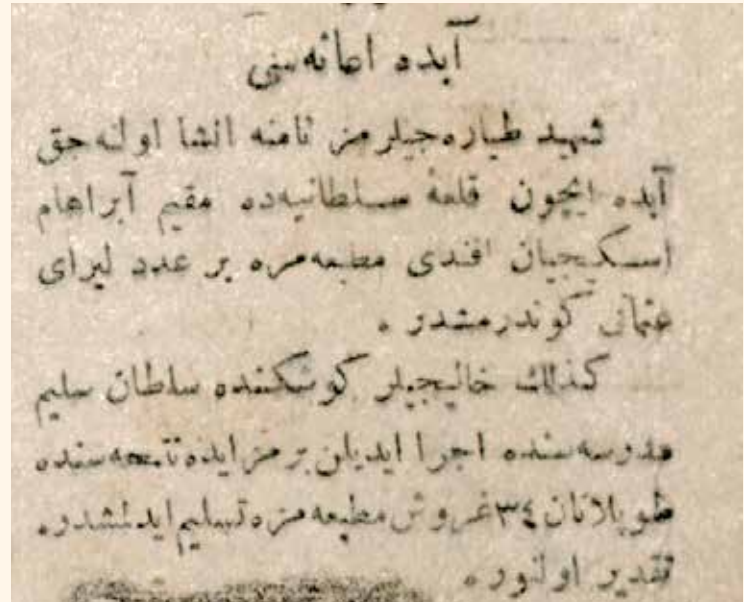 آبده اعانه‌سی
شهید طیاره‌جیلرمز نامنه انشا اوله‌جق
آبده ایچون قلعهٔ سلطانیه‌ده مقیم آبراهام
اسکیجیان افندی مطبعه‌مزه بر عدد لیرای
عثمانی کوندرمشدر .
کذلك خالیجیلر کوشکنده سلطان سلیم
مدرسه‌سنده اجرا ایدیلن بر مزایده نتیجه‌سنده
طوپلانان ٣٤ غروش مطبعه‌مزه تسلیم ایدلمشدر .
تقدیر اولنور .